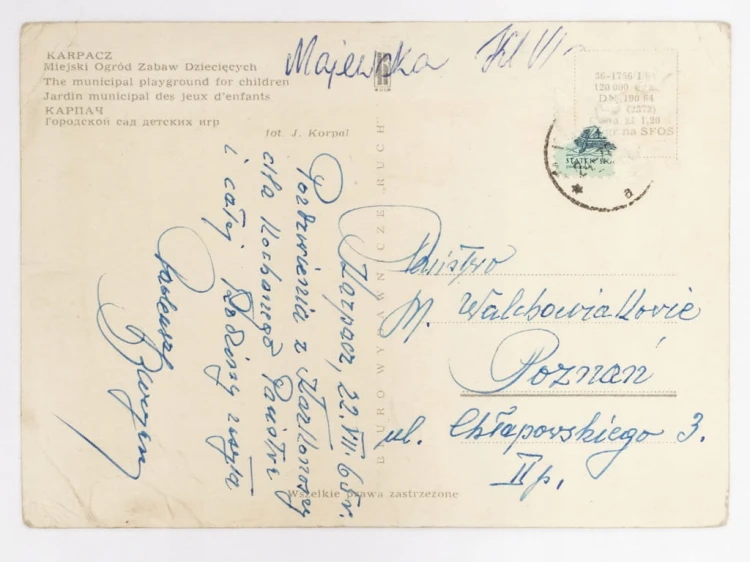 KARPACZ
Miejski Ogród Zabaw Dziecięcych
The municipal playground for children
Jardin municipal des jeux d'enfants
КАРПАЧ
Городской сад детских игр
fot. J. Korpal
Majewska
120 000
(2573)
zł 1,20
na SFOS
a
BIURO WYDAWNICZE „RUCH"
Karpacz, 22.VII.65r.
Pozdrowienia z Karkonoszy
dla Kochanego Państwa
i całej Rodziny
Państwo
M. Walchowiakowie
Poznań
ul. Chłapowskiego 3.
II p.
Wszelkie prawa zastrzeżone